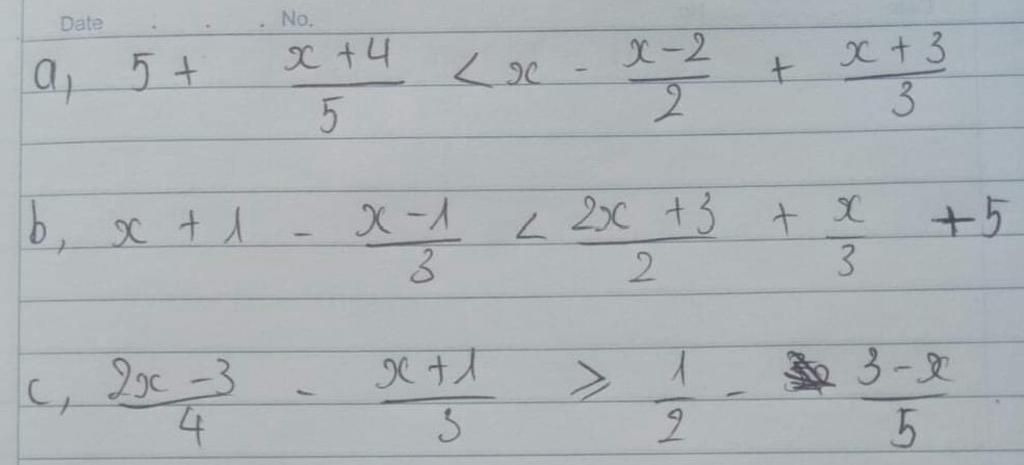 Date : . . . No.
a, 5 + \frac{x+4}{5} < x - \frac{x-2}{2} + \frac{x+3}{3}
b, x + 1 - \frac{x-1}{3} < \frac{2x+3}{2} + \frac{x}{3} + 5
c, \frac{2x-3}{4} - \frac{x+1}{3} ⩾ \frac{1}{2} - \frac{3-x}{5}